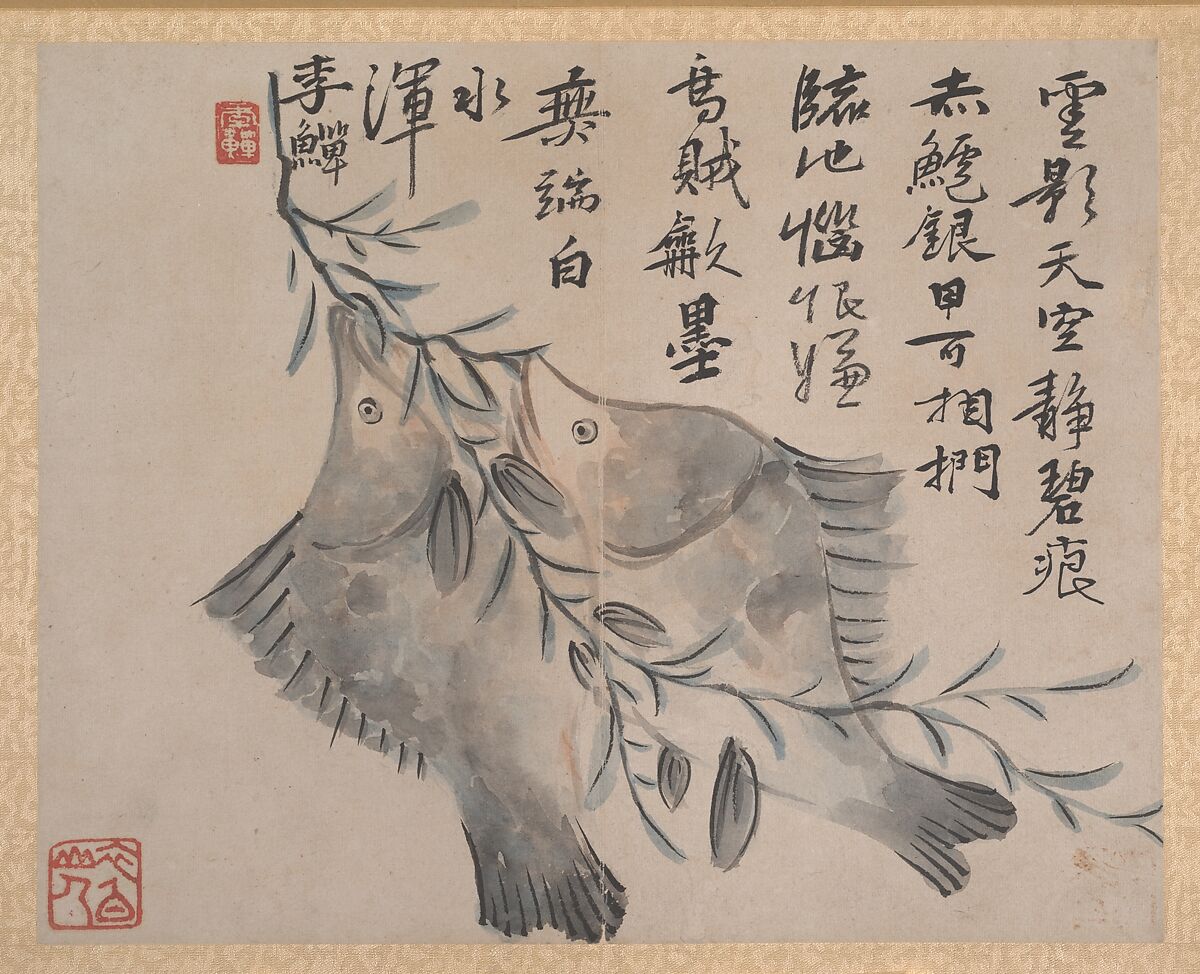 雲影天空靜碧痕
赤銀甲可相捫
臨池惱恨嫌
烏賊墨
無端白
水
渾
李鱓